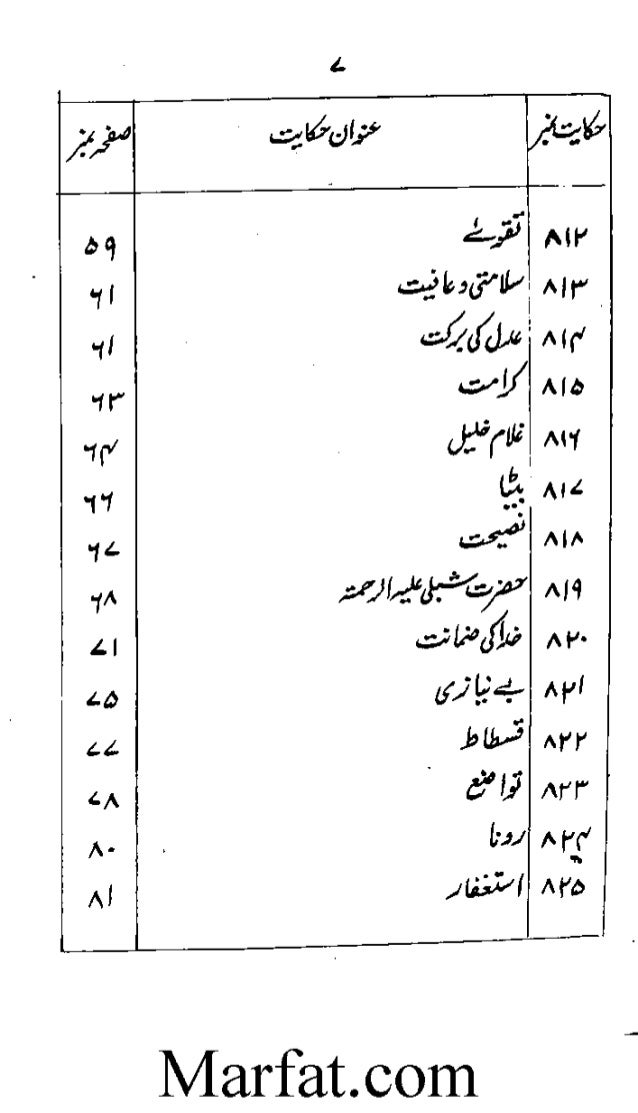 ۷
حکایت نمبر عنوان حکایت صفحہ نمبر
۸۱۲ تقوےٰ ۵۹
۸۱۳ سلامتی و عافیت ۶۱
۸۱۴ عدل کی برکت ۶۱
۸۱۵ کرامت ۶۳
۸۱۶ غلام خلیل ۶۴
۸۱۷ بیٹا ۶۶
۸۱۸ نصیحت ۶۷
۸۱۹ حضرت شبلی علیہ الرحمتہ ۶۸
۸۲۰ خدا کی ضمانت ۷۱
۸۲۱ بے نیازی ۷۵
۸۲۲ قسطاط ۷۷
۸۲۳ تواضع ۷۸
۸۲۴ رونا ۸۰
۸۲۵ استغفار ۸۱
Marfat.com